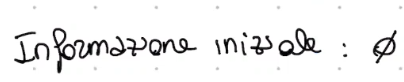 Informazione iniziale : ∅